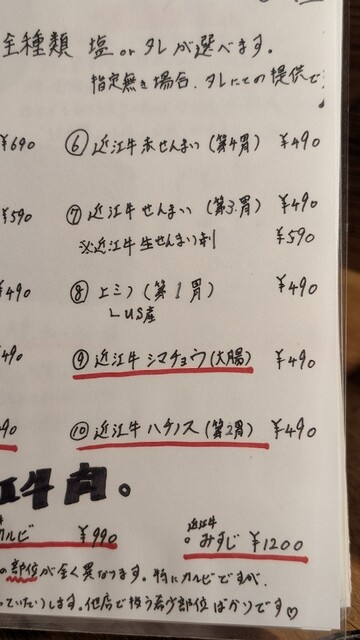 全種類 塩 or タレ が選べます。
指定無き場合、タレにての提供で
¥690 ⑥ 近江牛 赤せんまい (第4胃) ¥490
¥590 ⑦ 近江牛 せんまい (第3胃) ¥490
※近江牛 生せんまい刺 ¥590
¥490 ⑧ 上ミノ (第1胃) ¥490
└ US産
¥490 ⑨ 近江牛 シマチョウ (大腸) ¥490
¥490 ⑩ 近江牛 ハチノス (第2胃) ¥490
江牛肉。
カルビ ¥990
近江牛
みすじ ¥1200
の部位が全く異なります。特にカルビですが、
っていたいします。他店で扱う希少部位ばかりです♡